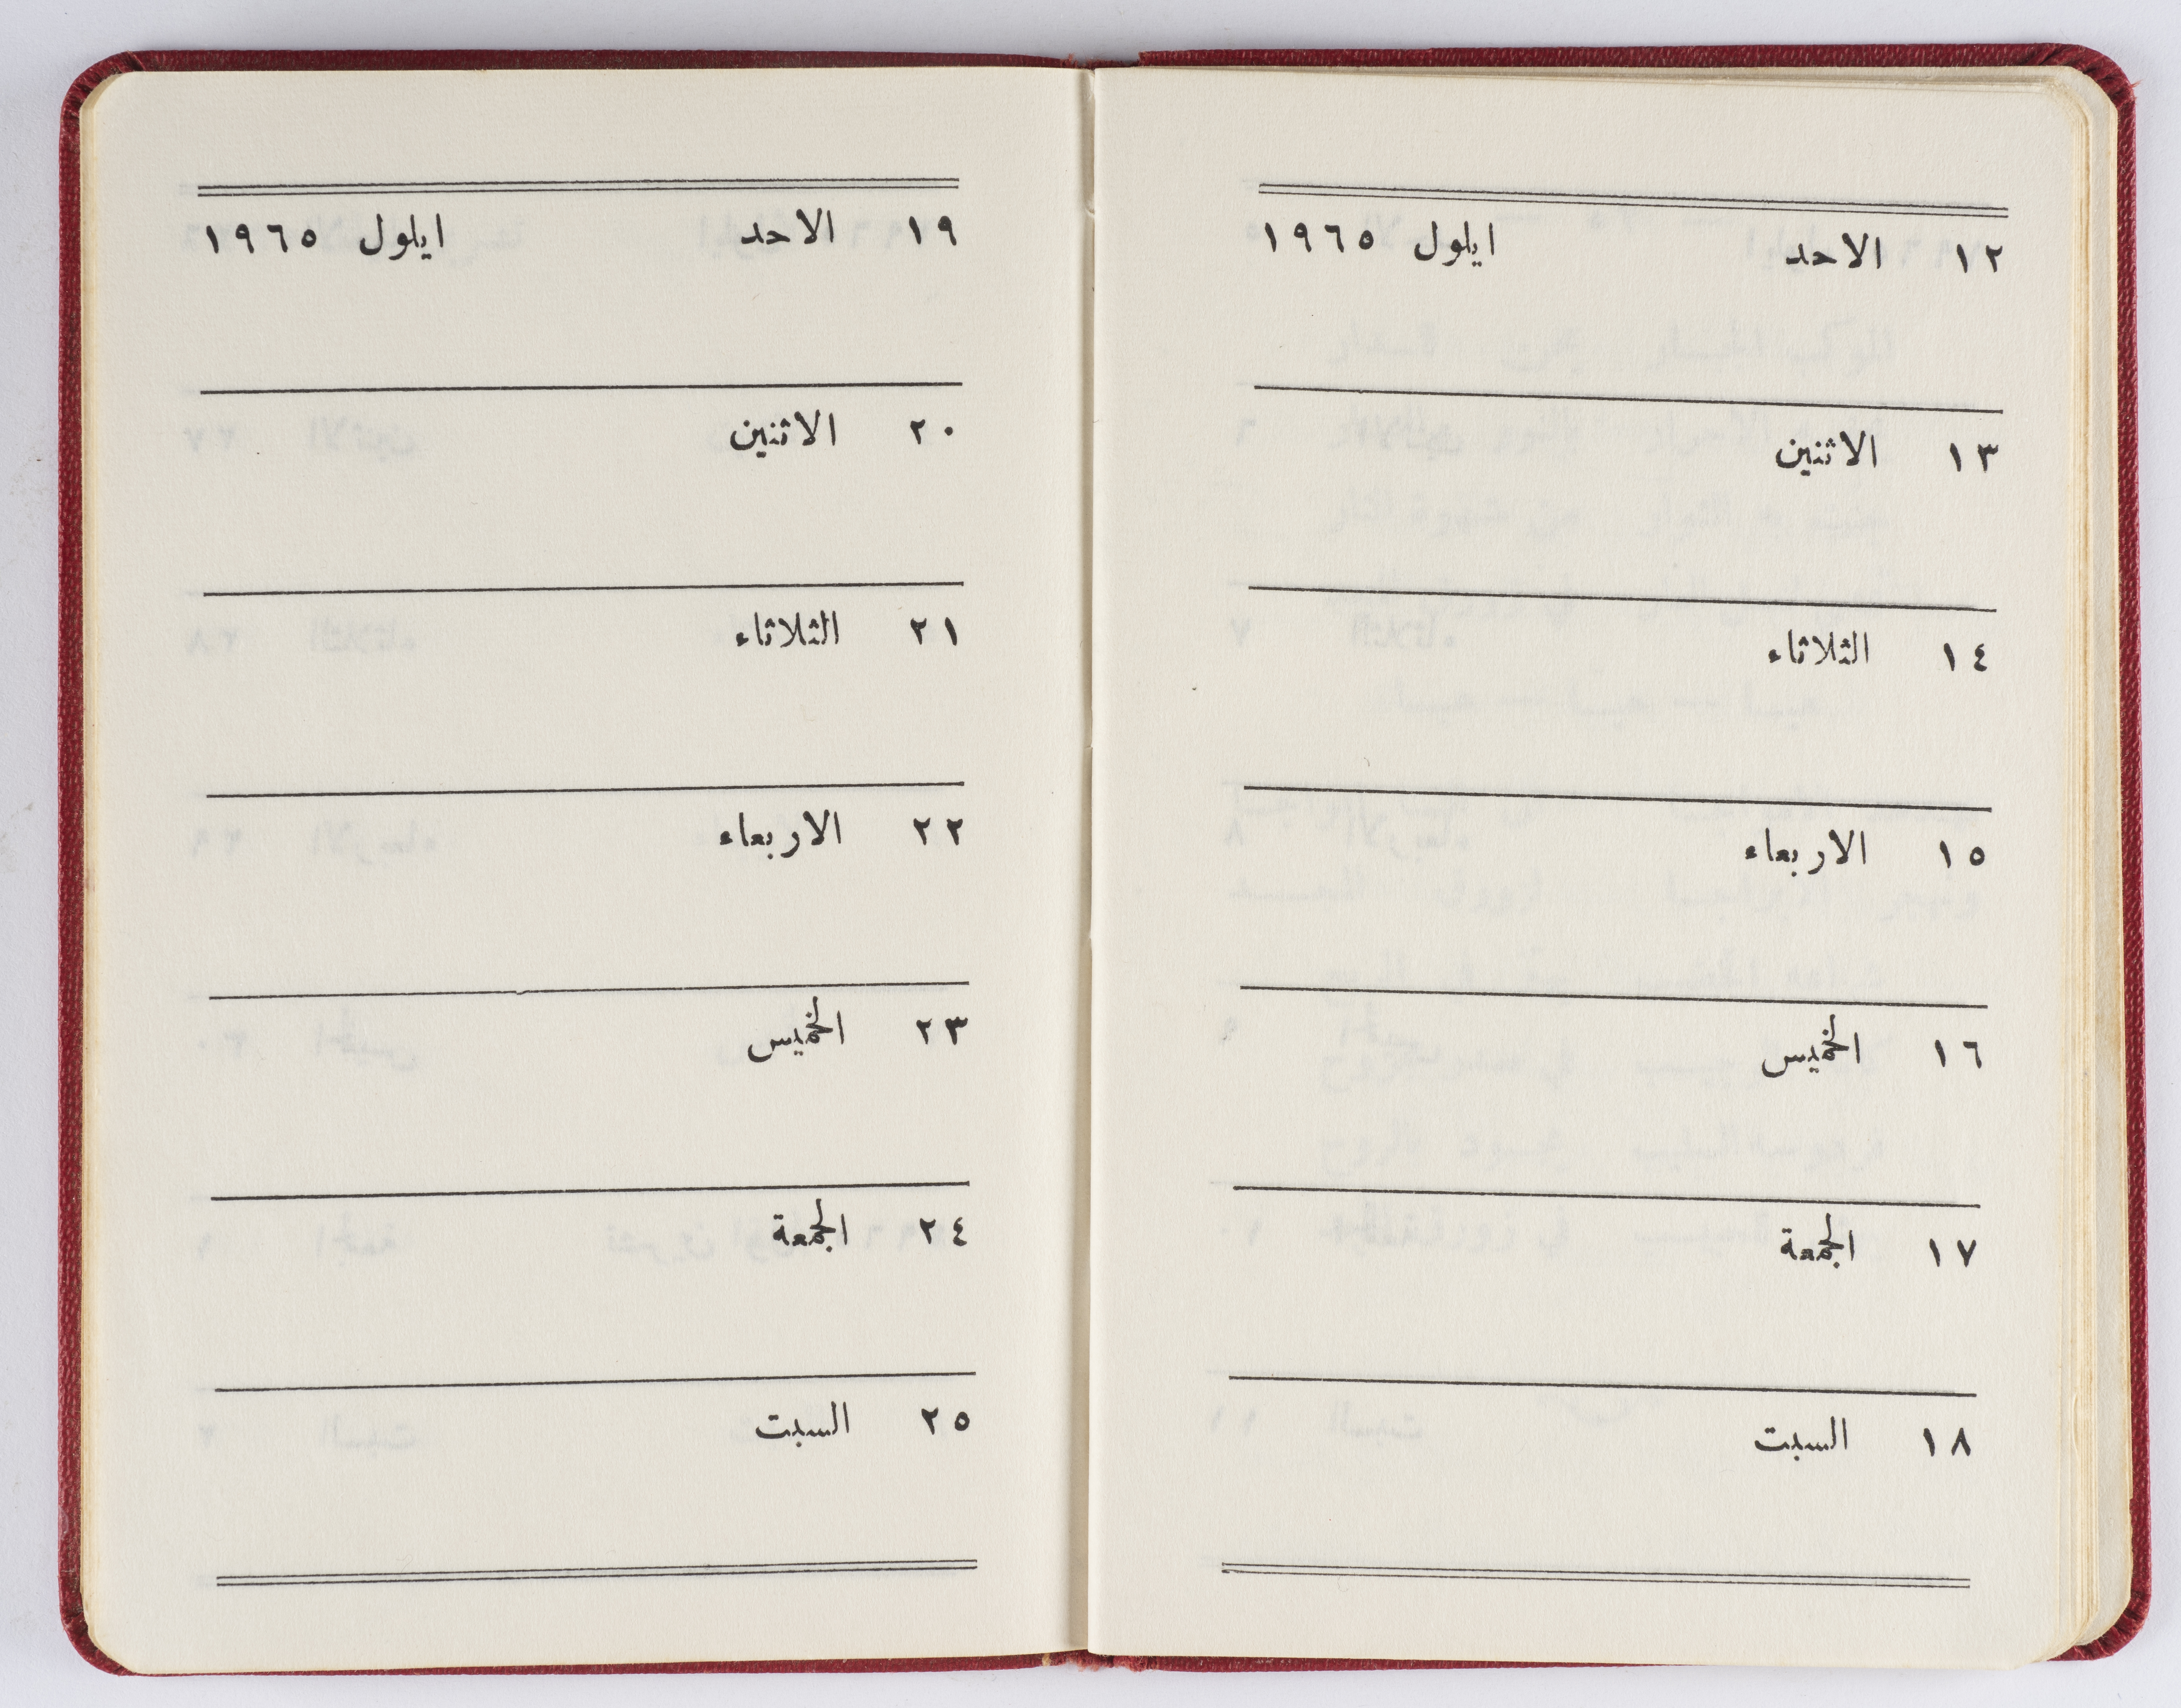 ١٢ الاحد ايلول ١٩٦٥
١٣ الاثنين
١٤ الثلاثاء
١٥ الاربعاء
١٦ الخميس
١٧ الجمعة
١٨ السبت
١٩ الاحد ايلول ١٩٦٥
٢٠ الاثنين
٢١ الثلاثاء
٢٢ الاربعاء
٢٣ الخميس
٢٤ الجمعة
٢٥ السبت